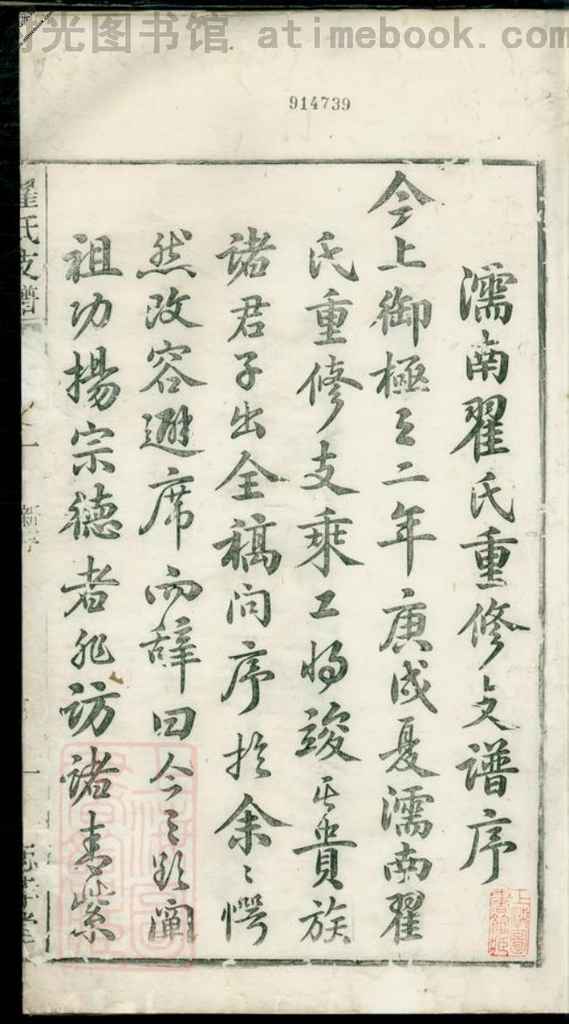 时光图书馆 atimebook.com
914739
濡南翟氏重修支譜序
今上御極之二年庚戌夏濡南翟
氏重修支乘工將竣其貴族
諸君子出全稿問序於余〻愕
然改容避席而辭曰今之欲闡
祖功揚宗德者非訪諸青紫
翟氏支譜